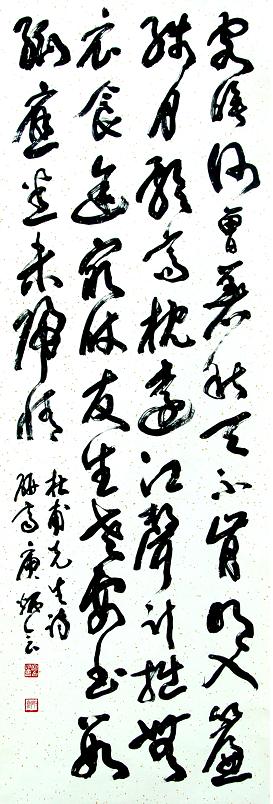 客睡何曾著秋天不肯明入簾
殘月影高枕遠江聲計拙無
衣食途窮仗友生老妻書數
紙應悉未歸情
杜甫先生詩
庚